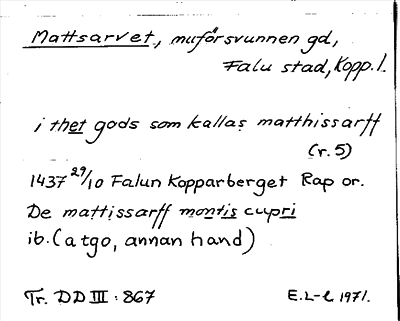 Mattsarvet, nuförsvunnen gd,
Falu stad, Kopp. l.
i thet gods som kallas matthissarff
(r. 5)
1437 29/10 Falun Kopparberget Rap or.
De mattissarff montis cupri
ib. (a tgo, annan hand)
Tr. DD III : 867
E. L-l 1971.